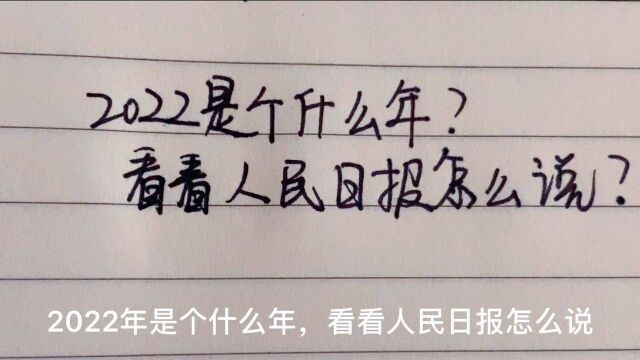 2022是个什么年？
看看人民日报怎么说？
2022年是个什么年，看看人民日报怎么说